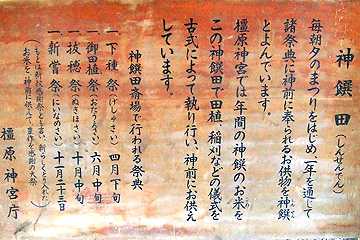 神饌田(しんせんでん)
毎朝夕のまつりをはじめ一年を通じて
諸祭典に神前に奉られるお供物を神饌
とよんでいます。
橿原神宮では年間の神饌のお米を
この神饌田で田植、稲刈などの儀式を
古式によって執り行い、神前にお供え
しています。
神饌田斎場で行われる祭典
一 下種祭(げしゅさい) 四月下旬
一 御田植祭(おたうえさい) 六月中旬
一 抜穂祭(ぬきほさい) 十月中旬
一 新嘗祭(にいなめさい) 十一月二十三日
橿原神宮庁